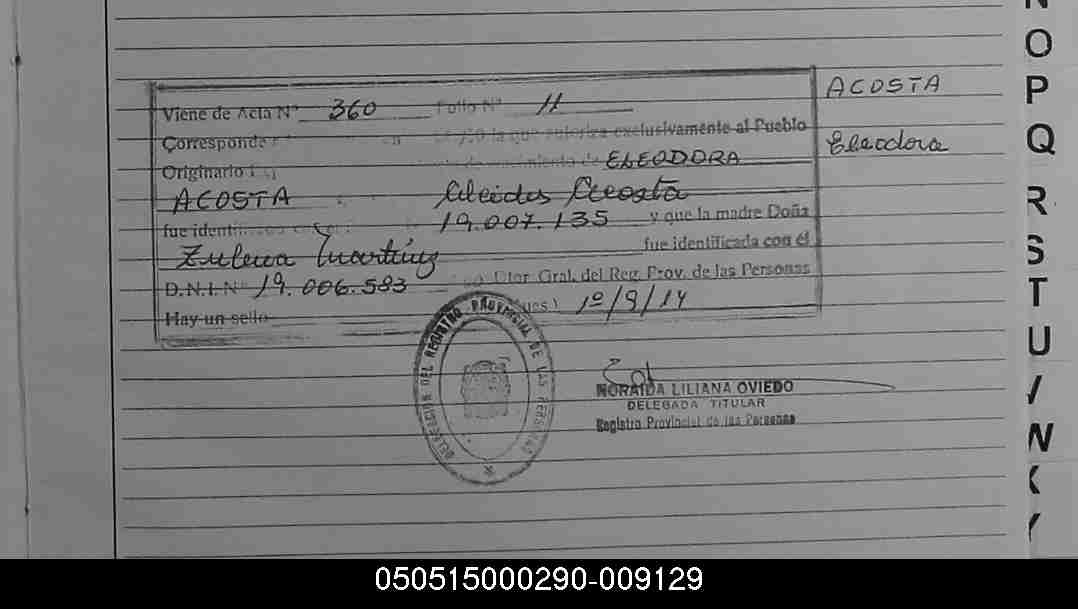 Viene de Acta Nº 360 Folio Nº 11
ACOSTA
Corresponde la que autoriza exclusivamente al Pueblo
Eleodora
Originario de ELEODORA
ACOSTA Acosta
fue identificado 19.007.135 y que la madre Doña
Zulema Martínez fue identificada con el
D.N.I. Nº 19.006.583 Dtor. Gral. del Reg. Prov. de las Personas
Hay un sello 1º/9/14
DELEGACION DEL REGISTRO PROVINCIAL DE LAS PERSONAS
NORAIDA LILIANA OVIEDO
DELEGADA TITULAR
Registro Provincial de las Personas
N
O
P
Q
R
S
T
U
V
W
X
Y
050515000290-009129